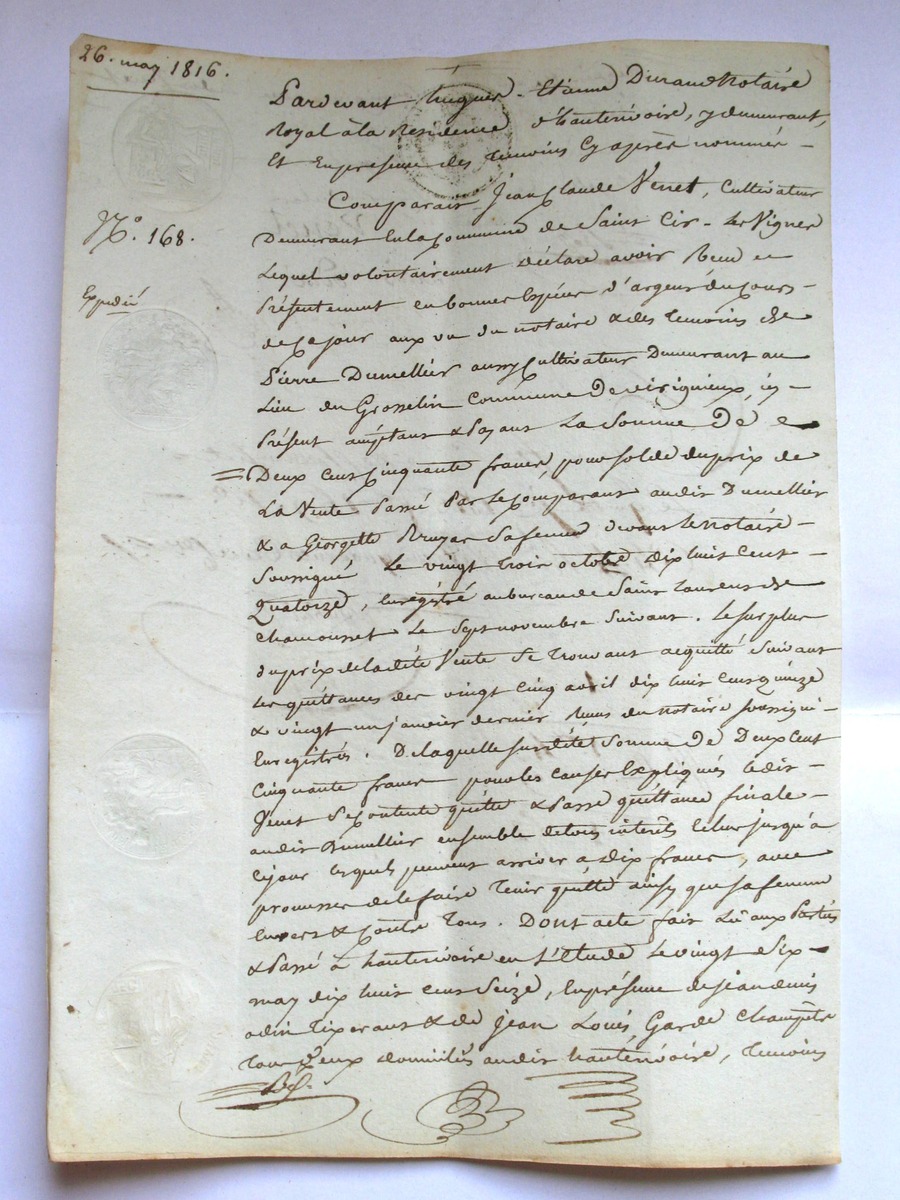 26. may 1816.
N.o 168.
Expedié
Pardevant hugues - Etienne Durand Notaire
Royal à la Residence d'hauterivoire, y demeurant,
Et En presence des temoins Cy après nommés -
Comparait Jean Claude Venet, Cultivateur
Demeurant En la Commune de Saint Cir - Les Vignes
Lequel volontairement déclare avoir Reçu
Présentement en bonnes Espèces d'argent du Cours -
de ce jour aux vu du notaire & des temoins De
Pierre Dumellier aussy Cultivateur Demeurant au
Lieu du Grosselin Commune De virigneux, icy -
Présent acceptant & Payant La Somme De
Deux Cent Cinquante francs, pour solde du prix de
La Vente Passé Par le Comparant audit Dumellier
& a Georgette Bruyas Sa femme devant le Notaire -
Soussigné Le vingt trois octobre dix huit Cent -
Quatorze, Enregistré au bureau de Saint Laurent de
Chamousset Le Sept novembre Suivant. Le Surplus
du prix de la dite Vente Se trouvant acquitté Suivant
Les quittances des vingt Cinq avril dix huit Cent quinze
& vingt un janvier dernier Reçus du Notaire Soussigné -
Enregistrés. De laquelle Susdite Somme De Deux Cent
Cinquante francs pour les Causes Expliqués Ledit -
Venet Se Contente quitte & Passe quittance finale -
audit Dumellier ensemble de tous interêts Echus jusqu'à
Ce jour lesquels peuvent arriver a dix francs, avec
promesses de le faire tenir quitte ainsy que Sa femme
Envers & Contre tous. Dont acte fait Lû aux Parties
& Passé à hauterivoire en l'Etude Le vingt Six -
may dix huit Cent Seize, En présence de Jean denis
odin tixerant & de Jean Louis, Garde Champêtre
tous deux domiciliés audit hauterivoire, temoins